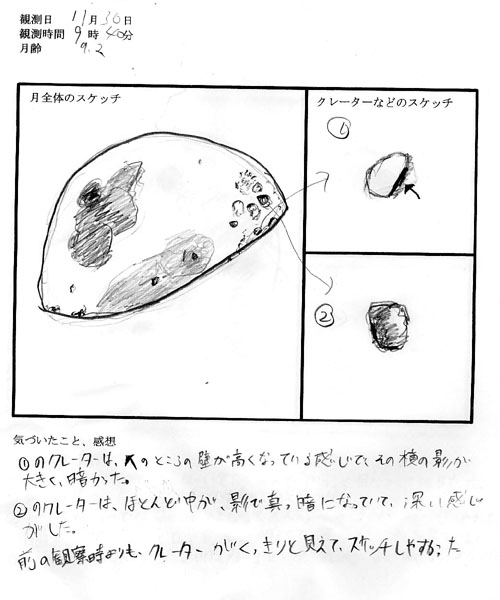 観測日 11月30日
観測時間 9時40分
月齢 9.2
月全体のスケッチ
クレーターなどのスケッチ
①
②
気づいたこと、感想
①のクレーターは、↖のところの壁が高くなっている感じで、その横の影が
大きく、暗かった。
②のクレーターは、ほとんど中が、影で真っ暗になっていて、深い感じ
がした。
前の観察時よりも、クレーターがくっきりと見えて、スケッチしやすかった